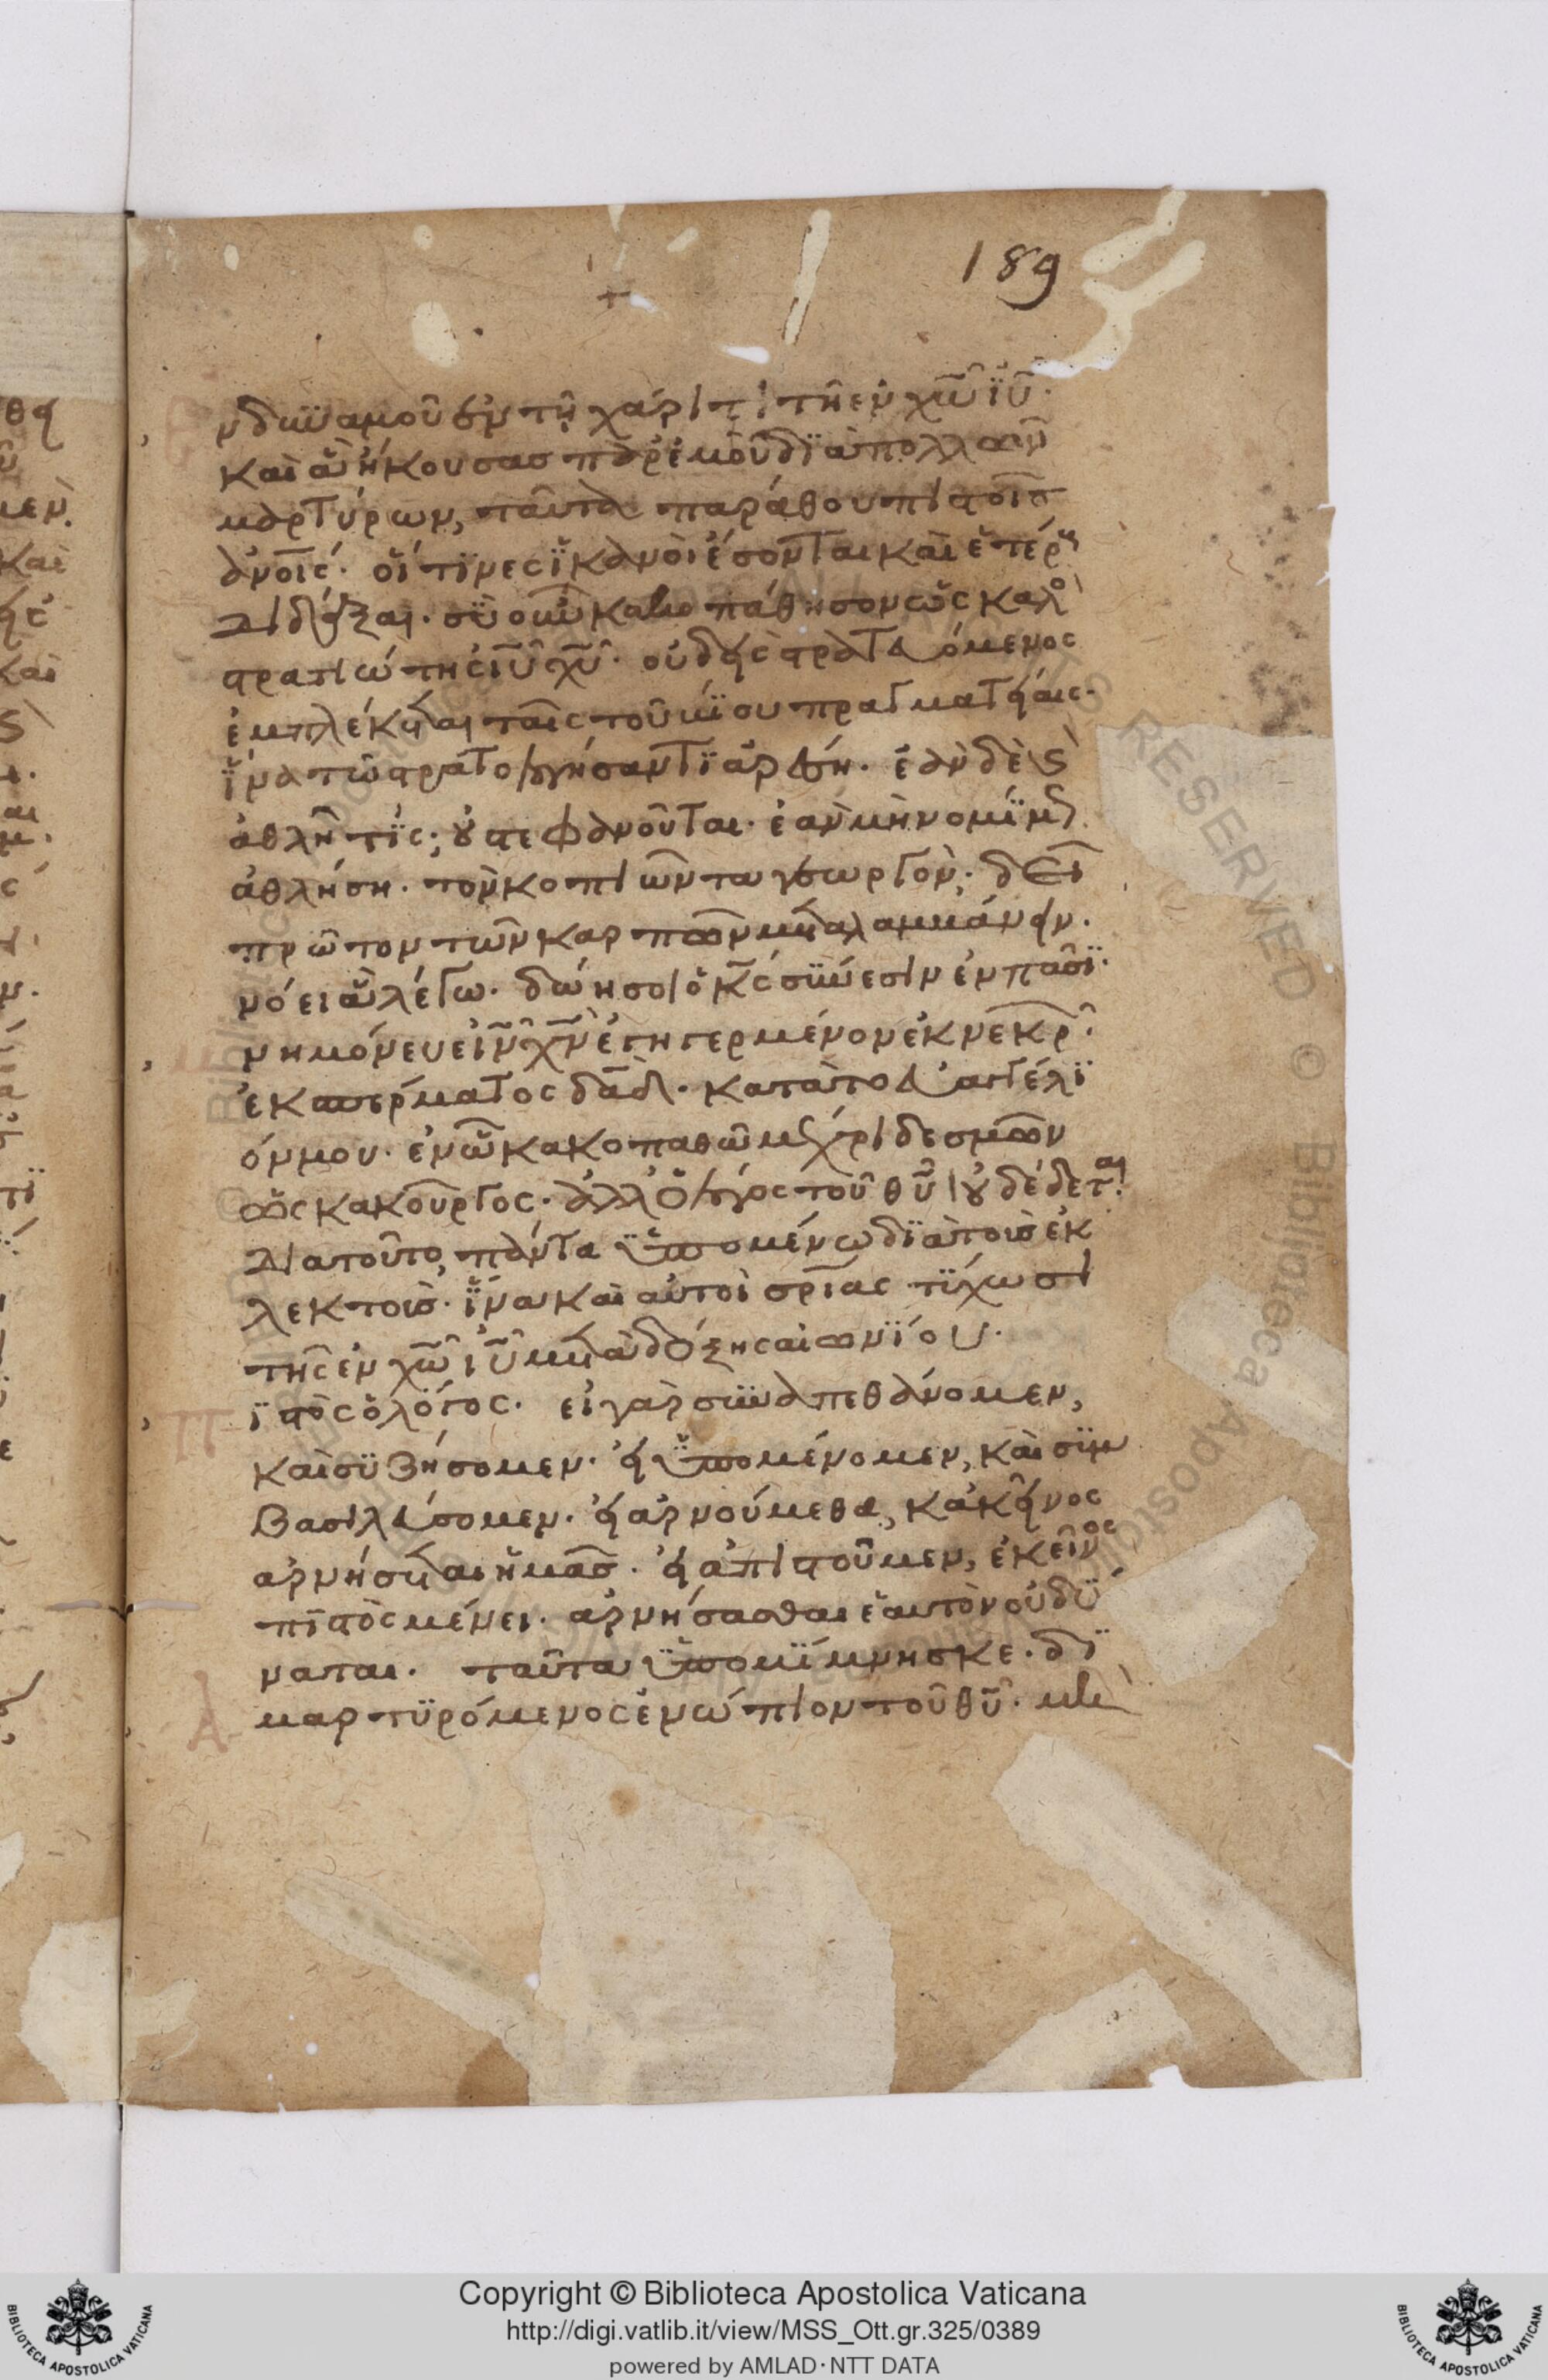 189
νδυναμοῦ ἐν τῇ χάριτι τῆ ἐν χ͞ω ι͞υ.
καὶ ἃ ἤκουσας παρ' ἐμοῦ διὰ πολλῶν
μαρτύρων, ταῦτα παράθου πιστοῖς
ἀν͞οις. οἵτινες ἱκανοὶ ἔσονται καὶ ἑτέρ
διδάξαι. σὺ οὖν κακοπάθησον ὡς καλὸ
στρατιώτης ι͞υ χ͞υ. οὐδεὶς στρατευόμενος
ἐμπλέκεται ταῖς τοῦ βίου πραγματείαις.
ἵνα τῶ στρατολογήσαντι ἀρέση. ἐὰν δὲ καὶ
ἀθλῆ τίς, οὐ στεφανοῦται. ἐὰν μὴ νομίμως
ἀθλήση. τὸν κοπιῶντα γεωργὸν, δεῖ
πρῶτον τῶν καρπῶν μεταλαμβάνειν.
νόει ἃ λέγω. δώη σοι ὁ κ͞ς σύνεσιν ἐν πᾶσι.
μνημόνευε ι͞ν χ͞ν ἐγηγερμένον ἐκ νεκρ
ἐκ σπέρματος δα͞δ. κατὰ τὸ εὐαγγέλι
όν μου. ἐν ὧ κακοπαθῶ μέχρι δεσμῶν
ὡς κακοῦργος. ἀλλ' ὁ λόγος τοῦ θ͞υ οὐ δέδεται.
διατοῦτο, πάντα ὑπομένω διὰ τοὺς ἐκ
λεκτούς. ἵνα καὶ αὐτοὶ σ͞ριας τύχωσι
τῆς ἐν χ͞ω ι͞υ μετὰ δόξης αἰωνίου.
πιστὸς ὁ λόγος. εἰ γὰρ συναπεθάνομεν,
καὶ συζήσομεν. εἰ ὑπομένομεν, καὶ συμ
βασιλεύσομεν. εἰ ἀρνούμεθα, κἀκεῖνος
ἀρνήσεται ἡμᾶς. εἰ ἀπιστοῦμεν, ἐκεῖνος
πιστὸς μένει. ἀρνήσασθαι ἑαυτὸν οὐ δύ
ναται. ταῦτα ὑπομίμνησκε. δι
μαρτυρόμενος ἐνώπιον τοῦ θ͞υ. μὴ
Copyright © Biblioteca Apostolica Vaticana
http://digi.vatlib.it/view/MSS_Ott.gr.325/0389
powered by AMLAD·NTT DATA